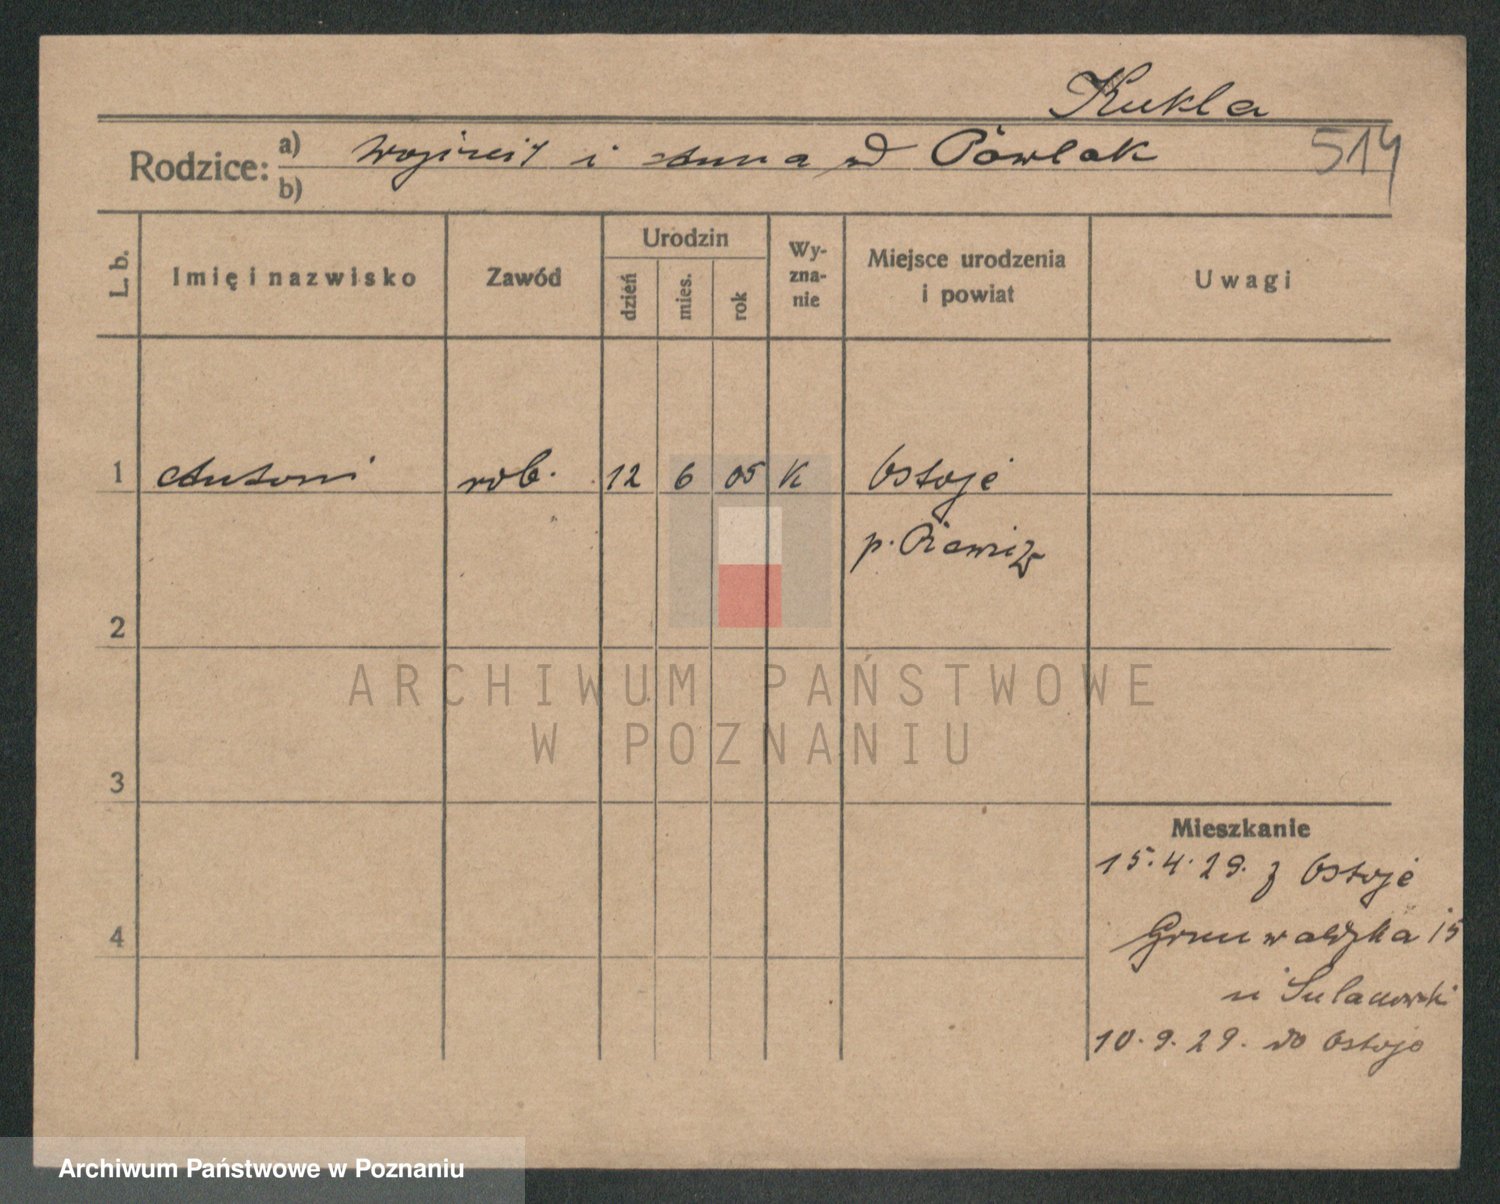 Kukla
514
Rodzice: a) Wojciech i Anna d Pawlak
b)
L. b.
Imię i nazwisko
Zawód
Urodzin
dzień
mies.
rok
Wy-
zna-
nie
Miejsce urodzenia
i powiat
Uwagi
1 Antoni rob. 12 6 05 K Ostoje
p.
2
3
4
ARCHIWUM PAŃSTWOWE
W POZNANIU
Mieszkanie
15.4.29. z Ostoje
Grunwaldzka 15
u
10.9.29. do Ostoje
Archiwum Państwowe w Poznaniu